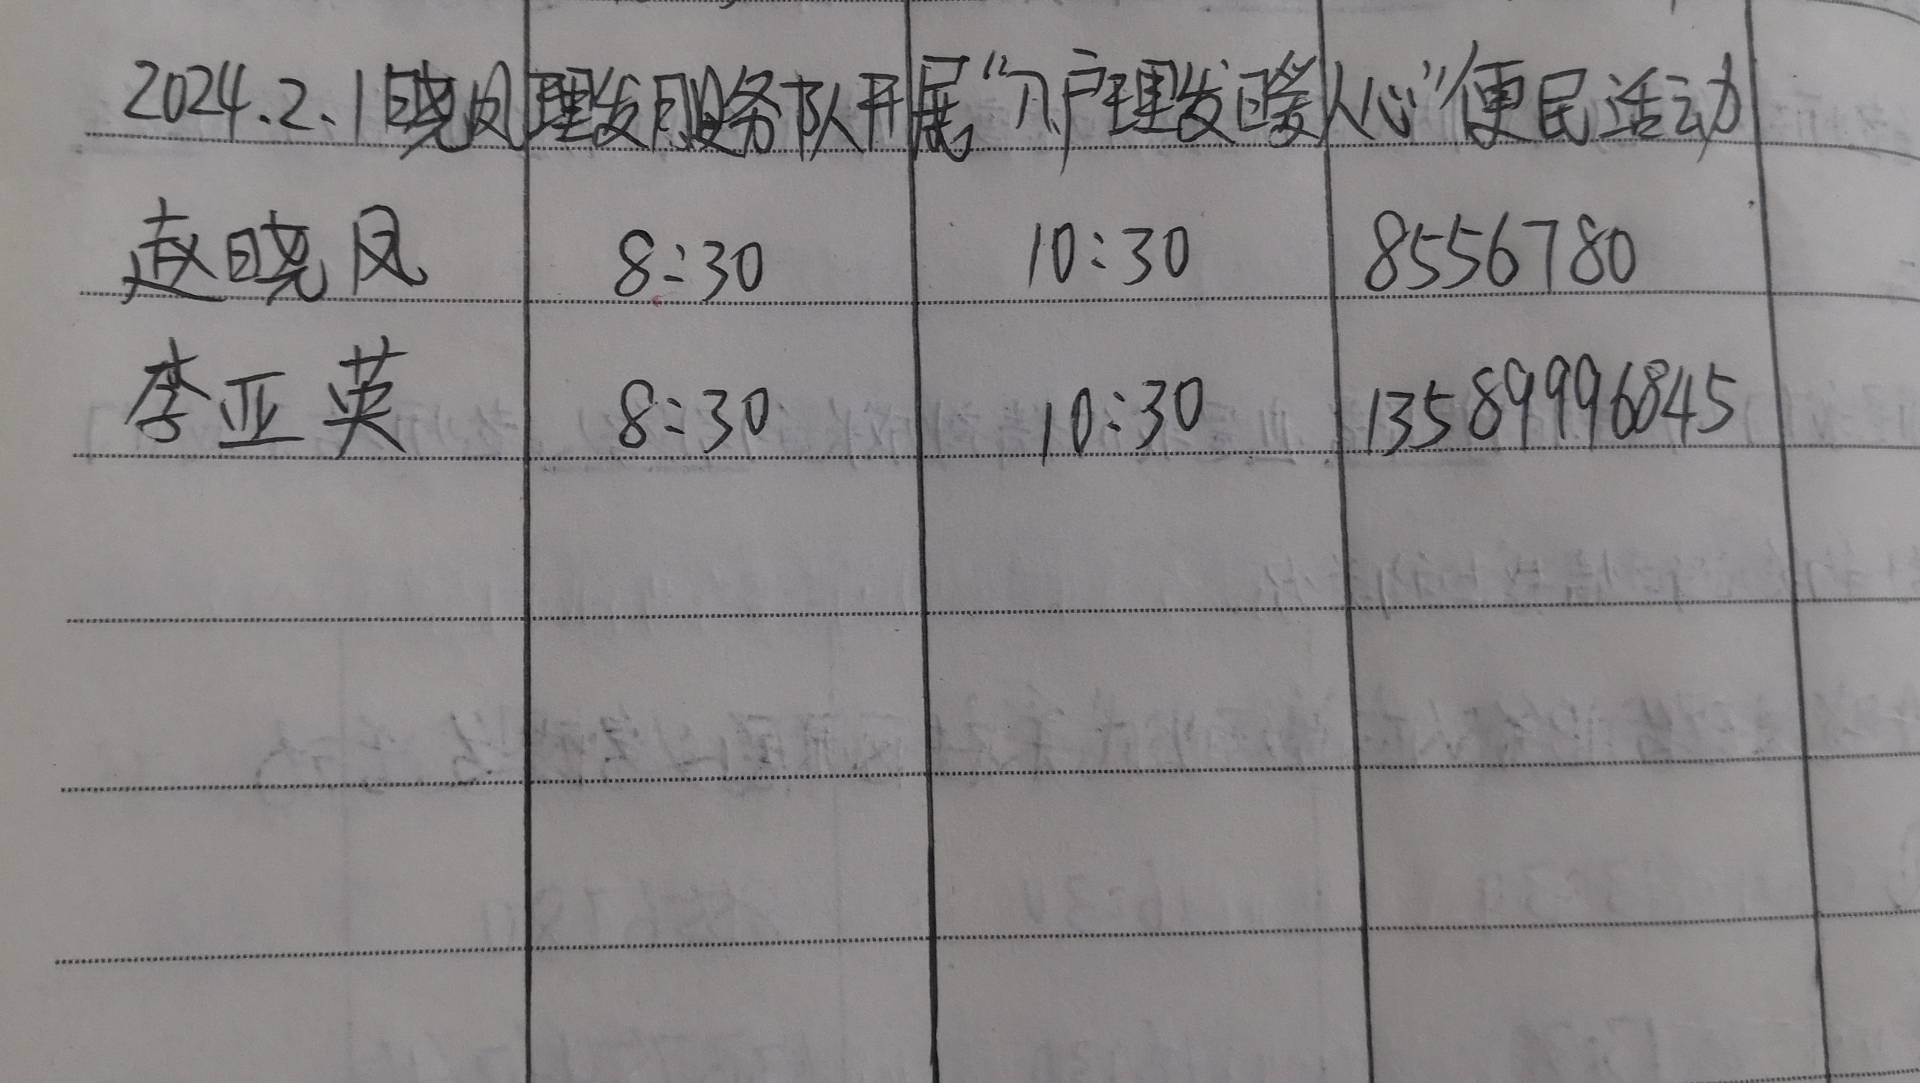 2024.2.1晓凤理发服务队开展“入户理发暖人心”便民活动
赵晓凤 8:30 10:30 8556780
李亚英 8:30 10:30 13589996845